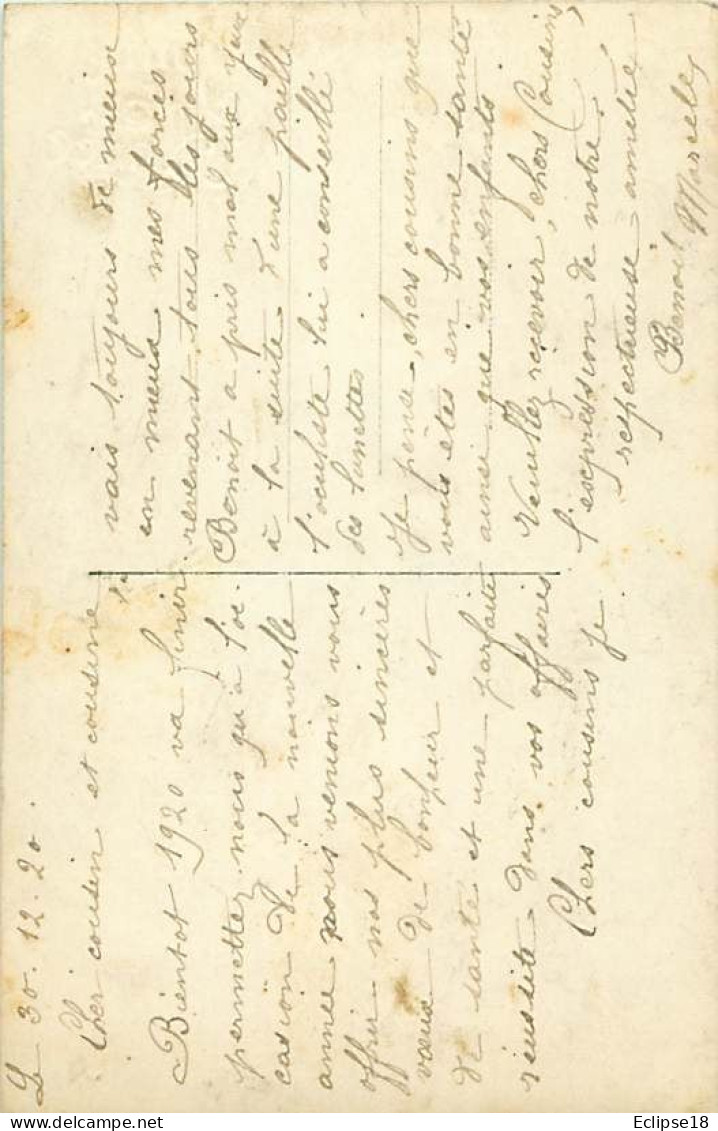 L 30.12.20.
Cher cousin et cousine
Bientot 1920 va finir
permettez nous qu'à l'oc-
casion de la nouvelle
année nous venions vous
offrir nos plus sincères
vœux de bonheur et
de santé et une parfaite
réussite dans vos affaires
Chers cousins je
vais toujours de mieux
en mieux mes forces
revenant tous les jours
Benoit a pris mal aux yeux
à la suite d'une paille
l'oculiste lui a conseillé
des lunettes
Je pense, chers cousins que
vous êtes en bonne santé
ainsi que vos enfants
Veuillez recevoir, chers Cousins,
l'expression de notre
respectueuse amitié
Benoit Marcelle
Eclipse18